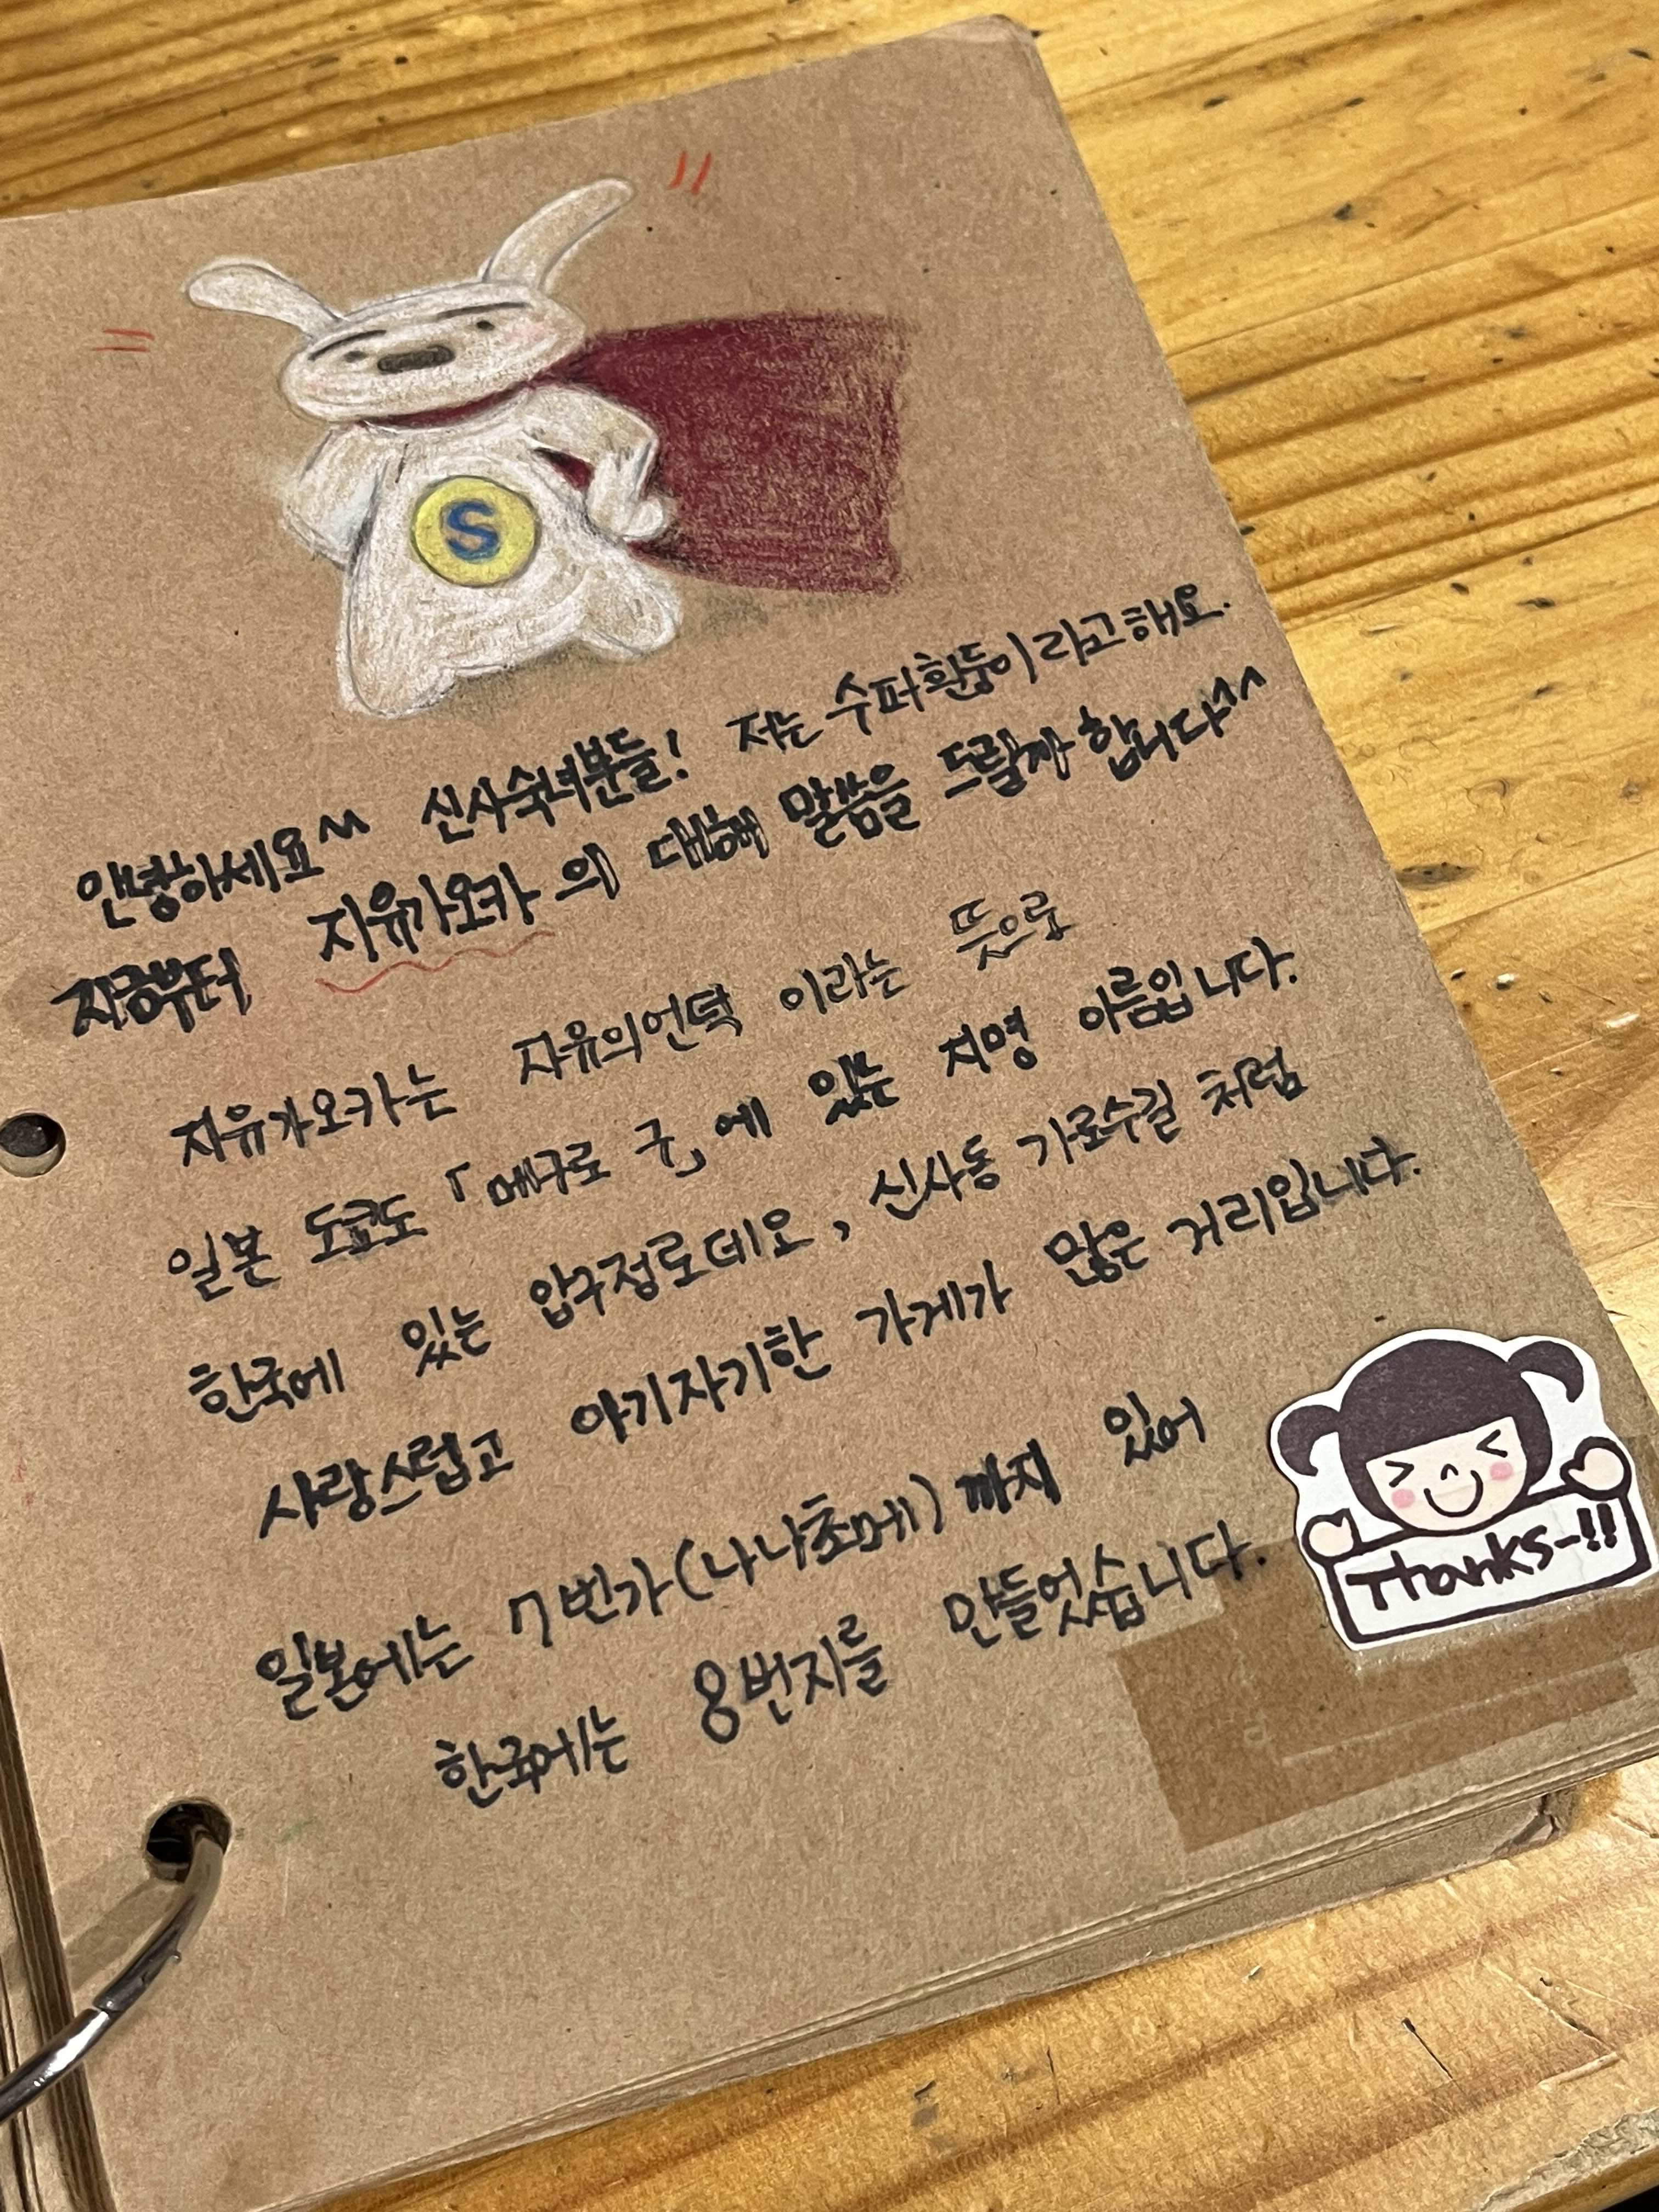 S
안녕하세요^^ 신사숙녀분들! 저는 수퍼흰둥이라고해요.
지금부터 자유가오카의 대해 말씀을 드릴까 합니다^^
자유가오카는 자유의언덕 이라는 뜻으로
일본 도쿄도 「메구로 구」에 있는 지명 이름입니다.
한국에 있는 압구정로데오, 신사동 가로수길 처럼
사랑스럽고 아기자기한 가게가 많은 거리입니다.
일본에는 7번가(나나쵸메)까지 있어
한국에는 8번지를 만들었습니다.
Thanks-!!